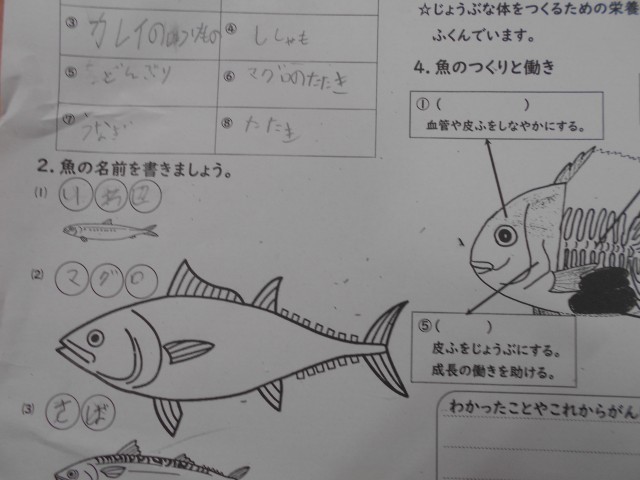 ③ カレイのあつりもの
④ ししゃも
⑤ どんぶり
⑥ マグロのたたき
⑦ うなぎ
⑧ たたき
2. 魚の名前を書きましょう。
(1)
(2) マグロ
(3) さば
☆じょうぶな体をつくるための栄養
ふくんでいます。
4. 魚のつくりと働き
①( )
血管や皮ふをしなやかにする。
⑤( )
皮ふをじょうぶにする。
成長の働きを助ける。
わかったことやこれからがん